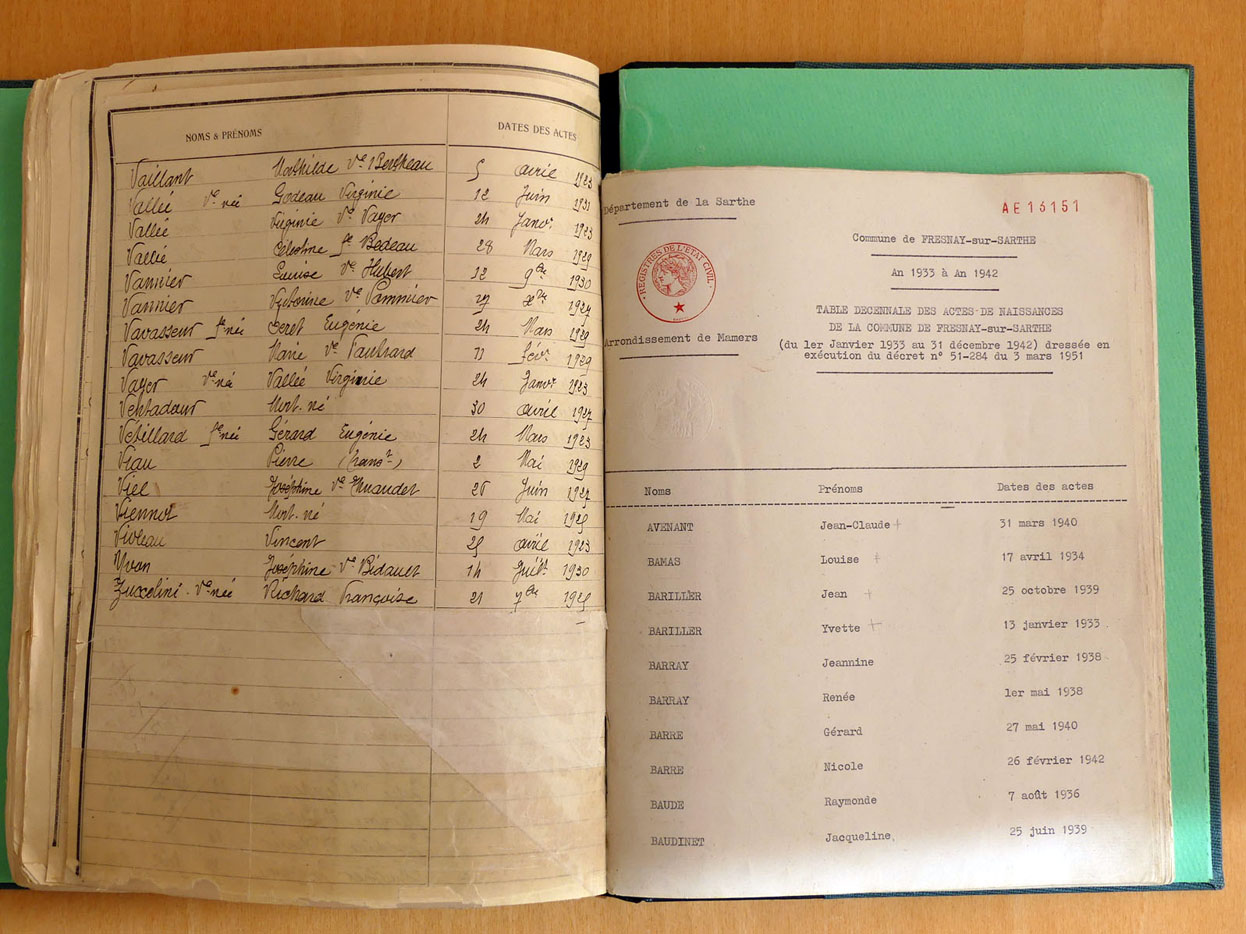 NOMS & PRÉNOMS DATES DES ACTES
Vaillant Mathilde Ve Bertheau 5 avril 1923
Vallée Ve née Godeau Virginie 12 Juin 1931
Vallée Virginie Ve Vayer 24 Janvr 1923
Vallée Célestine fe Bedeau 28 Mars 1929
Vannier Louise Ve Hubert 12 9bre 1930
Vannier Victorine Ve Pommier xbre
Vavasseur fe née Eugénie 24 Mars 1929
Vavasseur Marie Ve 11 févr 1929
Vayer Ve née Vallée Virginie 24 Janvr 1923
Ventadour Mort-né 30 avril 1927
Vétillard fe née Gérard Eugénie 24 Mars 1923
Viau Pierre (transn) 2 Mai 1929
Viel Joséphine Ve 26 Juin 1927
Viennot Mort-né 19 Mai 1925
Violeau Vincent 25 avril 1923
Yvon Joséphine Ve Bidault 14 Juilt 1930
Zuccolini Ve née Richard Françoise 21 7bre 1925
Département de la Sarthe
AE16151
Commune de FRESNAY-sur-SARTHE
REGISTRES DE L'ETAT CIVIL
An 1933 à An 1942
TABLE DECENNALE DES ACTES DE NAISSANCES
DE LA COMMUNE DE FRESNAY-sur-SARTHE
Arrondissement de Mamers
(du 1er Janvier 1933 au 31 décembre 1942) dressée en
exécution du décret n° 51-284 du 3 mars 1951
Noms Prénoms Dates des actes
AVENANT Jean-Claude 31 mars 1940
BAMAS Louise 17 avril 1934
BARILLER Jean 25 octobre 1939
BARILLER Yvette 13 janvier 1933
BARRAY Jeannine 25 février 1938
BARRAY Renée 1er mai 1938
BARRE Gérard 27 mai 1940
BARRE Nicole 26 février 1942
BAUDE Raymonde 7 août 1936
BAUDINET Jacqueline 25 juin 1939